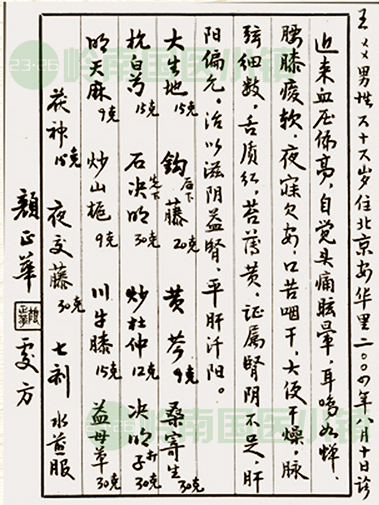 王××男性六十六岁住北京安华里二〇〇四年八月十日诊
近来血压偏高,自觉头痛眩晕,耳鸣如蝉,
腰膝痠软,夜寐欠安,口苦咽干,大便干燥,脉
弦细数,舌质红,苔薄黄,证属肾阴不足,肝
阳偏亢,治以滋阴益肾,平肝潜阳。
大生地15克 钩藤后下20克 黄芩9克 桑寄生30克
杭白芍15克 石决明先下30克 炒杜仲12克 决明子打30克
明天麻9克 炒山栀9克 川牛膝15克 益母草30克
茯神15克 夜交藤30克 七剂 水煎服
颜正华 处方
23·26 岭南国医小镇
岭南国医小镇